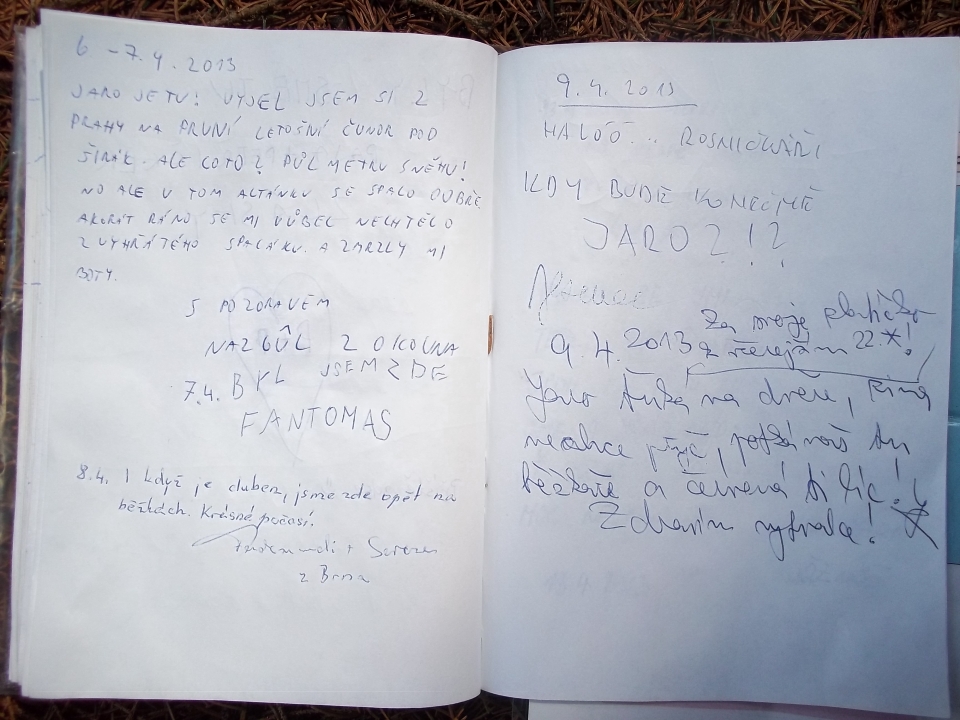 6 - 7.4.2013
JARO JE TU! VYJEL JSEM SI Z
PRAHY NA PRVNÍ LETOŠNÍ ČUNDR POD
ŠIRÁK. ALE COTO? PŮL METRU SNĚHU!
NO ALE V TOM ALTÁNKU SE SPALO DOBŘE
AKORÁT RÁNO SE MI VŮBEC NECHTĚLO
Z VYHŘÁTÉHO SPACÁKU. A ZMRZLY MI
BOTY.
S POZDRAVEM
NAZGÛL Z OKOUNA
7.4. BYL JSEM ZDE
FANTOMAS
8.4. I když je duben, jsme zde opět na
běžkách. Krásné počasí.
z Brna
9.4.2013
HALÓÓ... ROSNIČKÁŘI
KDY BUDE KONEČNĚ
JARO?!?
9.4.2013 Za svoje
z včerejším 22.*!
Jaro ťuká na dveře, zima
nechce pryč, potkáš tu
běžkaře a
Zdravím vytrvalce!